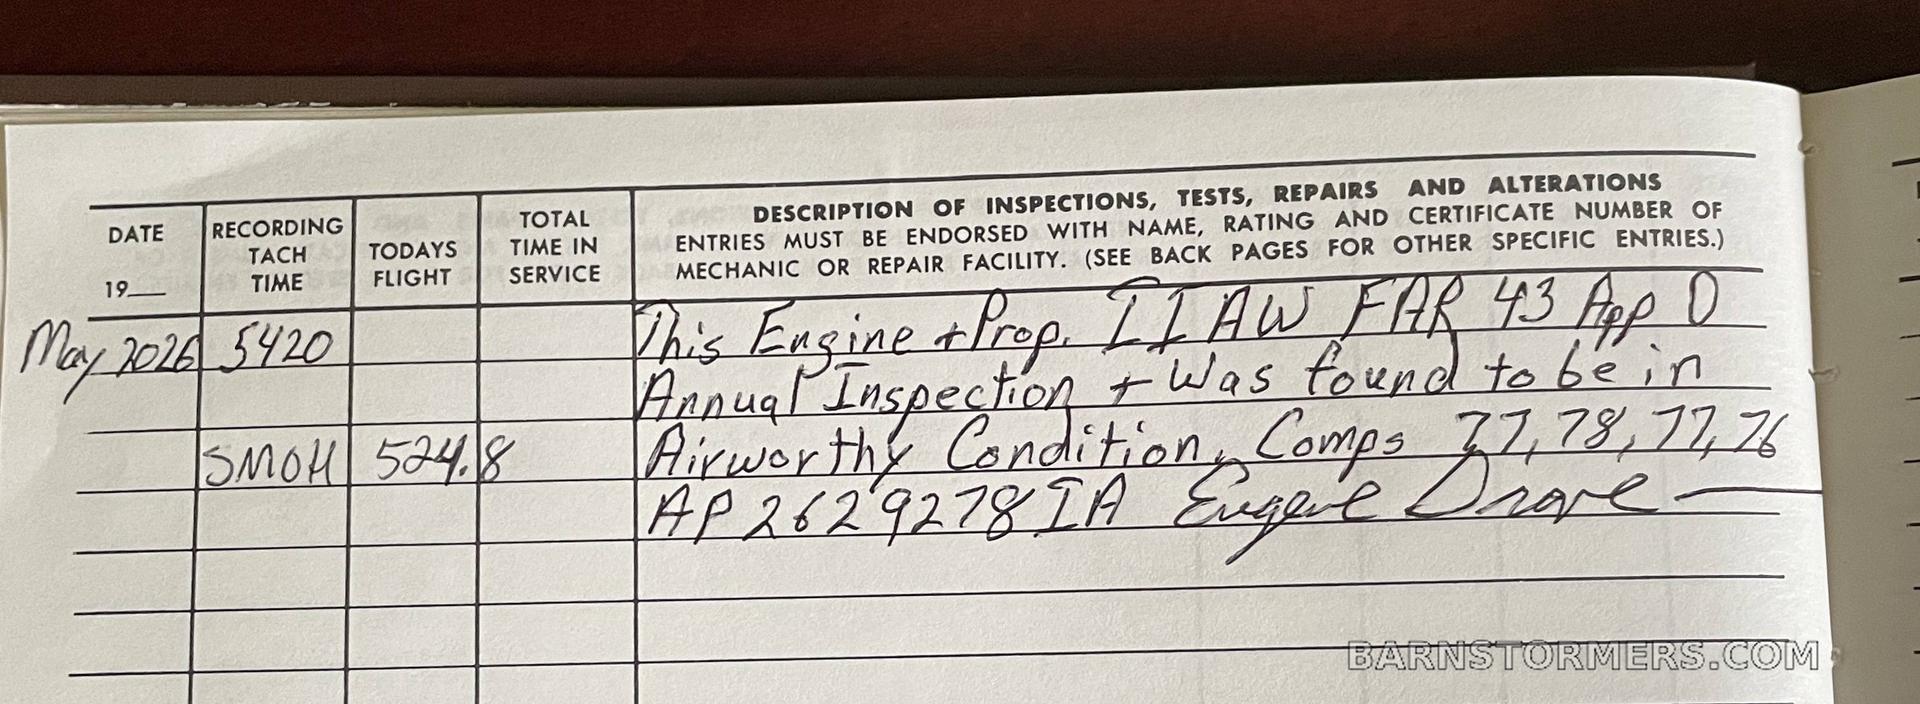 DATE
19__
RECORDING
TACH
TIME
TODAYS
FLIGHT
TOTAL
TIME IN
SERVICE
DESCRIPTION OF INSPECTIONS, TESTS, REPAIRS AND ALTERATIONS
ENTRIES MUST BE ENDORSED WITH NAME, RATING AND CERTIFICATE NUMBER OF
MECHANIC OR REPAIR FACILITY. (SEE BACK PAGES FOR OTHER SPECIFIC ENTRIES.)
May 2026 5420 This Engine + Prop. IIAW FAR 43 App D
Annual Inspection + Was found to be in
SMOH 524.8 Airworthy Condition, Comps 77, 78, 77, 76
AP 2629278 IA Eugene
BARNSTORMERS.COM